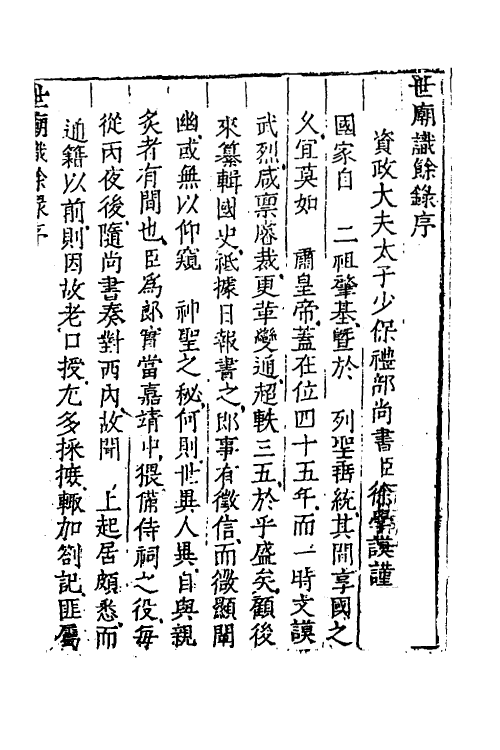 世廟識餘錄序
資政大夫太子少保禮部尚書臣徐學謨謹
國家自 二祖肇基曁於 列聖垂統其間享國之
久宜莫如 肅皇帝蓋在位四十五年而一時文謨
武烈咸禀濬裁更革變通超軼三五於乎盛矣顧後
來纂輯國史祗據日報書之郎事有徵信而微顯闡
幽或無以仰窺 神聖之秘何則世異人異自與親
炙者有間也臣爲郎實當嘉靖中猥備侍祠之役每
從丙夜後隨尚書奏對西內故聞 上起居頗悉而
通籍以前則因故老口授尤多採摭輙加劄記匪屬
世廟識餘錄序